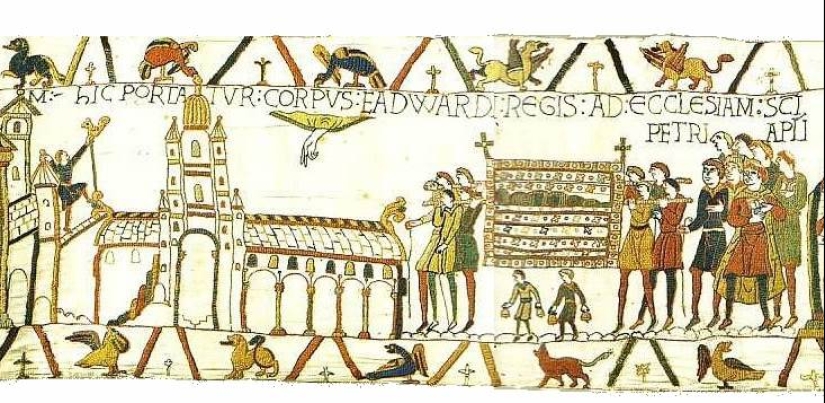 M:- hIC PORTATVR:CORPVS:EADWARDI:REGIS:AD:ECCLESIAM:SCI
PETRI APLI